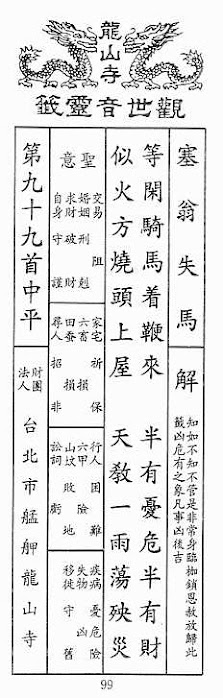 龍山寺
觀世音靈籤
塞翁失馬
解
知如不知不管是非常身臨枷鎖恩赦放歸此
籤凶危有之象凡事凶後吉
等閑騎馬着鞭來 半有憂危半有財
似火方燒頭上屋 天教一雨蕩殃災
聖意
交易 阻
婚姻 刑剋
求財 破財
自身 守謹
家宅 祈保
六畜 損
田蚕 損
尋人 招非
行人 困難
六甲 險
山坟 敗地
訟詞 虧
疾病 憂危險
失物 凶
移徙 守舊
第九十九首中平
財團
法人
台北市艋舺龍山寺
99